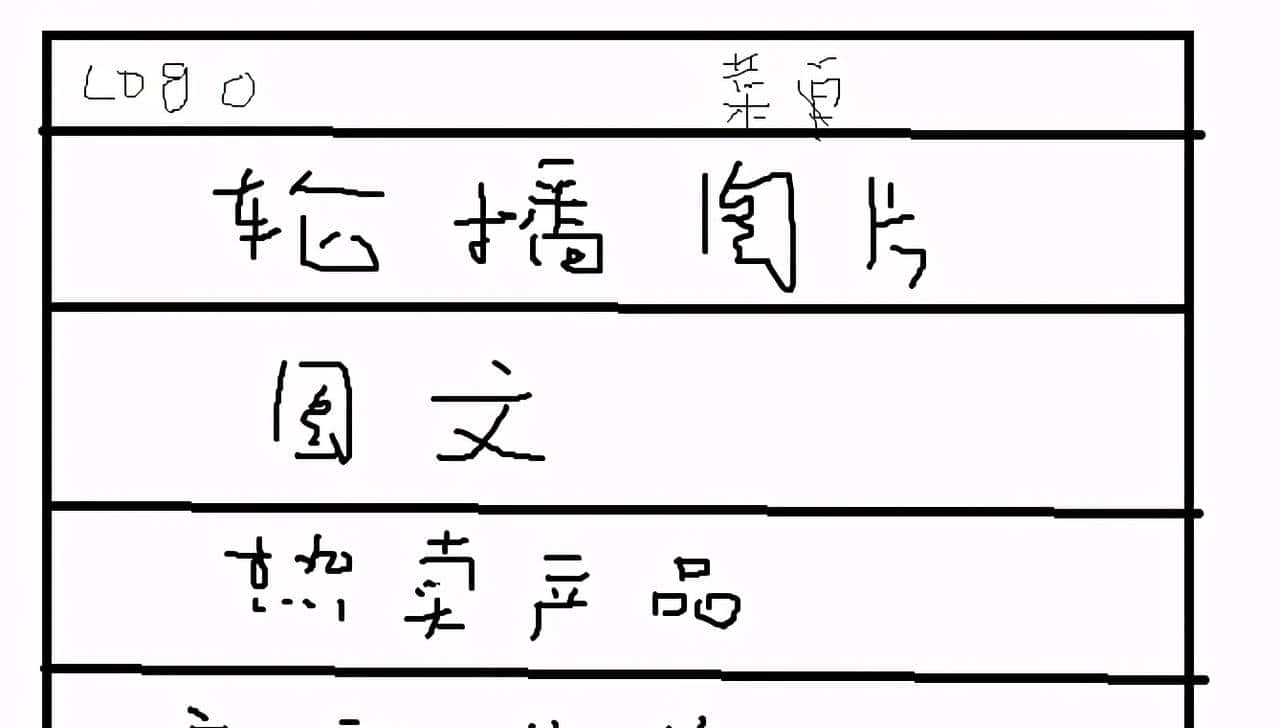 Logo 菜单
轮播图片
图文
热卖产品